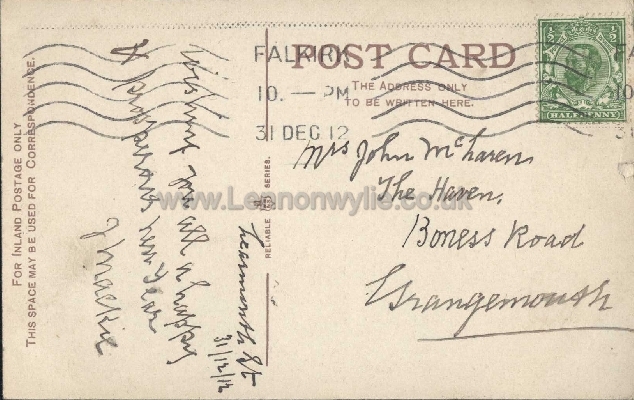 FALKIRK
10. — PM
31 DEC 12
POST CARD
THE ADDRESS ONLY
TO BE WRITTEN HERE.
FA
10
3
½ ½
HALFPENNY
FOR INLAND POSTAGE ONLY
THIS SPACE MAY BE USED FOR CORRESPONDENCE.
RELIABLE SERIES.
Learmonth St
31/12/12
Wishing you all a happy
& prosperous new year
J Mackie
Mrs John McLaren
The Haven,
Boness Road
Grangemouth
www.Lennonwylie.co.uk